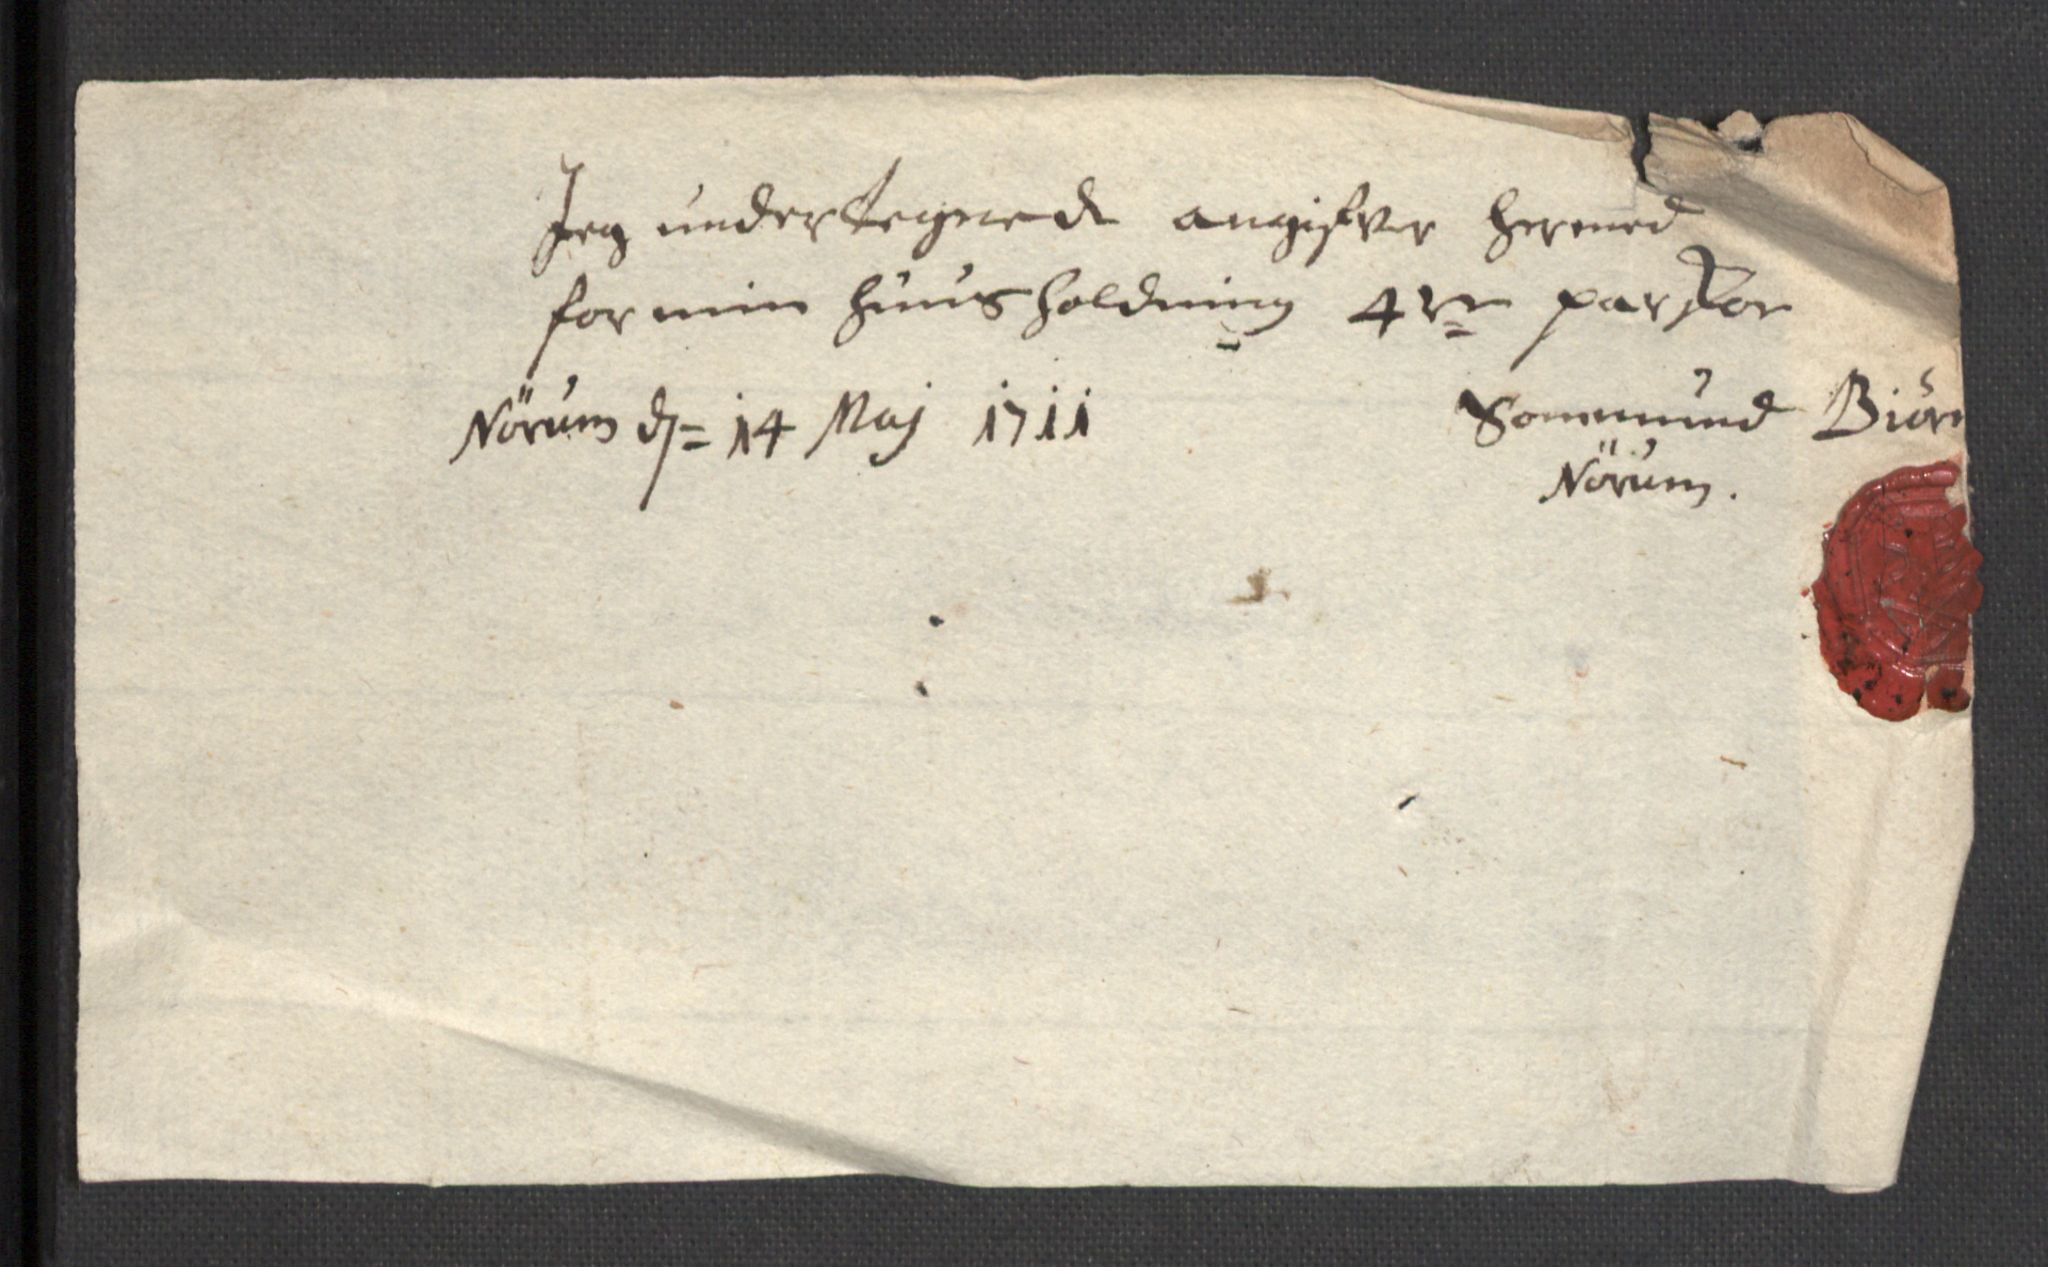 Jeg undertegnede angifver hermed
for min huusholdning 4re par skoe
Nörum d= 14 Maj 1711 Sommund Biör
Nörum.